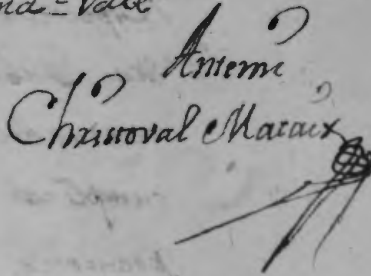 Vale
Antemi
Christoval Mataix